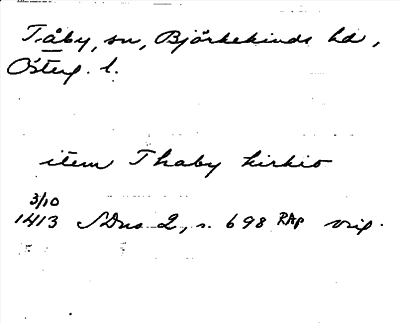 Tåby, sn, Björkekinds hd,
Österg. l.
item Thaby kirkio
3/10
1413 SDns 2, s. 698 RAp orig.